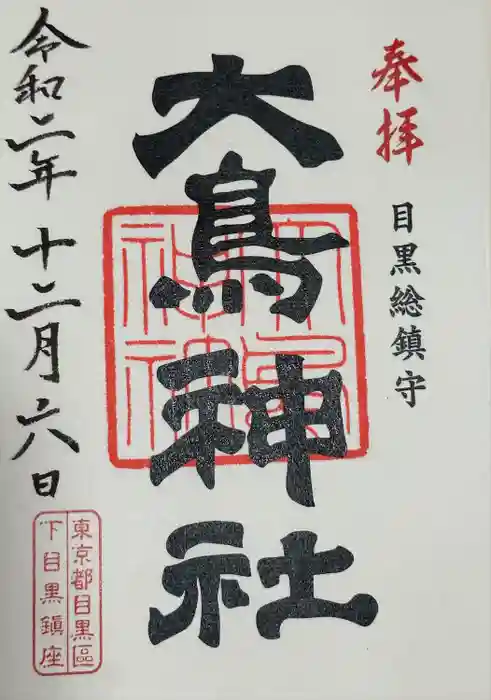 奉拝
目黒総鎮守
大鳥神社
大鳥神社
令和二年十二月六日
東京都目黒區
下目黒鎮座